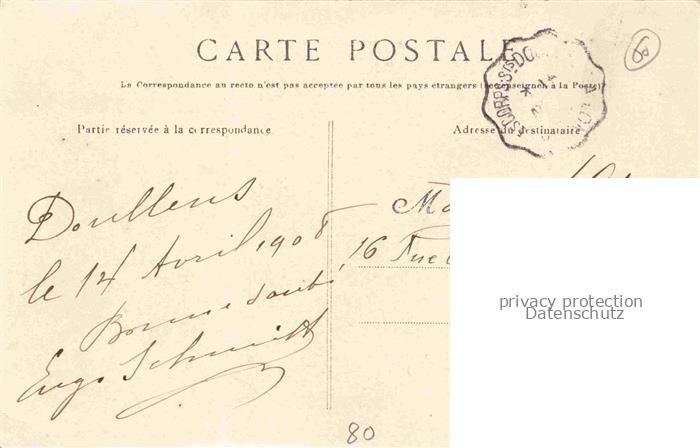 CARTE POSTALE
La Correspondance au recto n'est pas acceptée par tous les pays étrangers (se renseignen à la Poste)
Partie réservée à la correspondance
Adresse du destinataire
Doullens
le 14 Avril 1908
Bonne Santé
Eug. Schmitt
16 Rue
privacy protection
Datenschutz
80